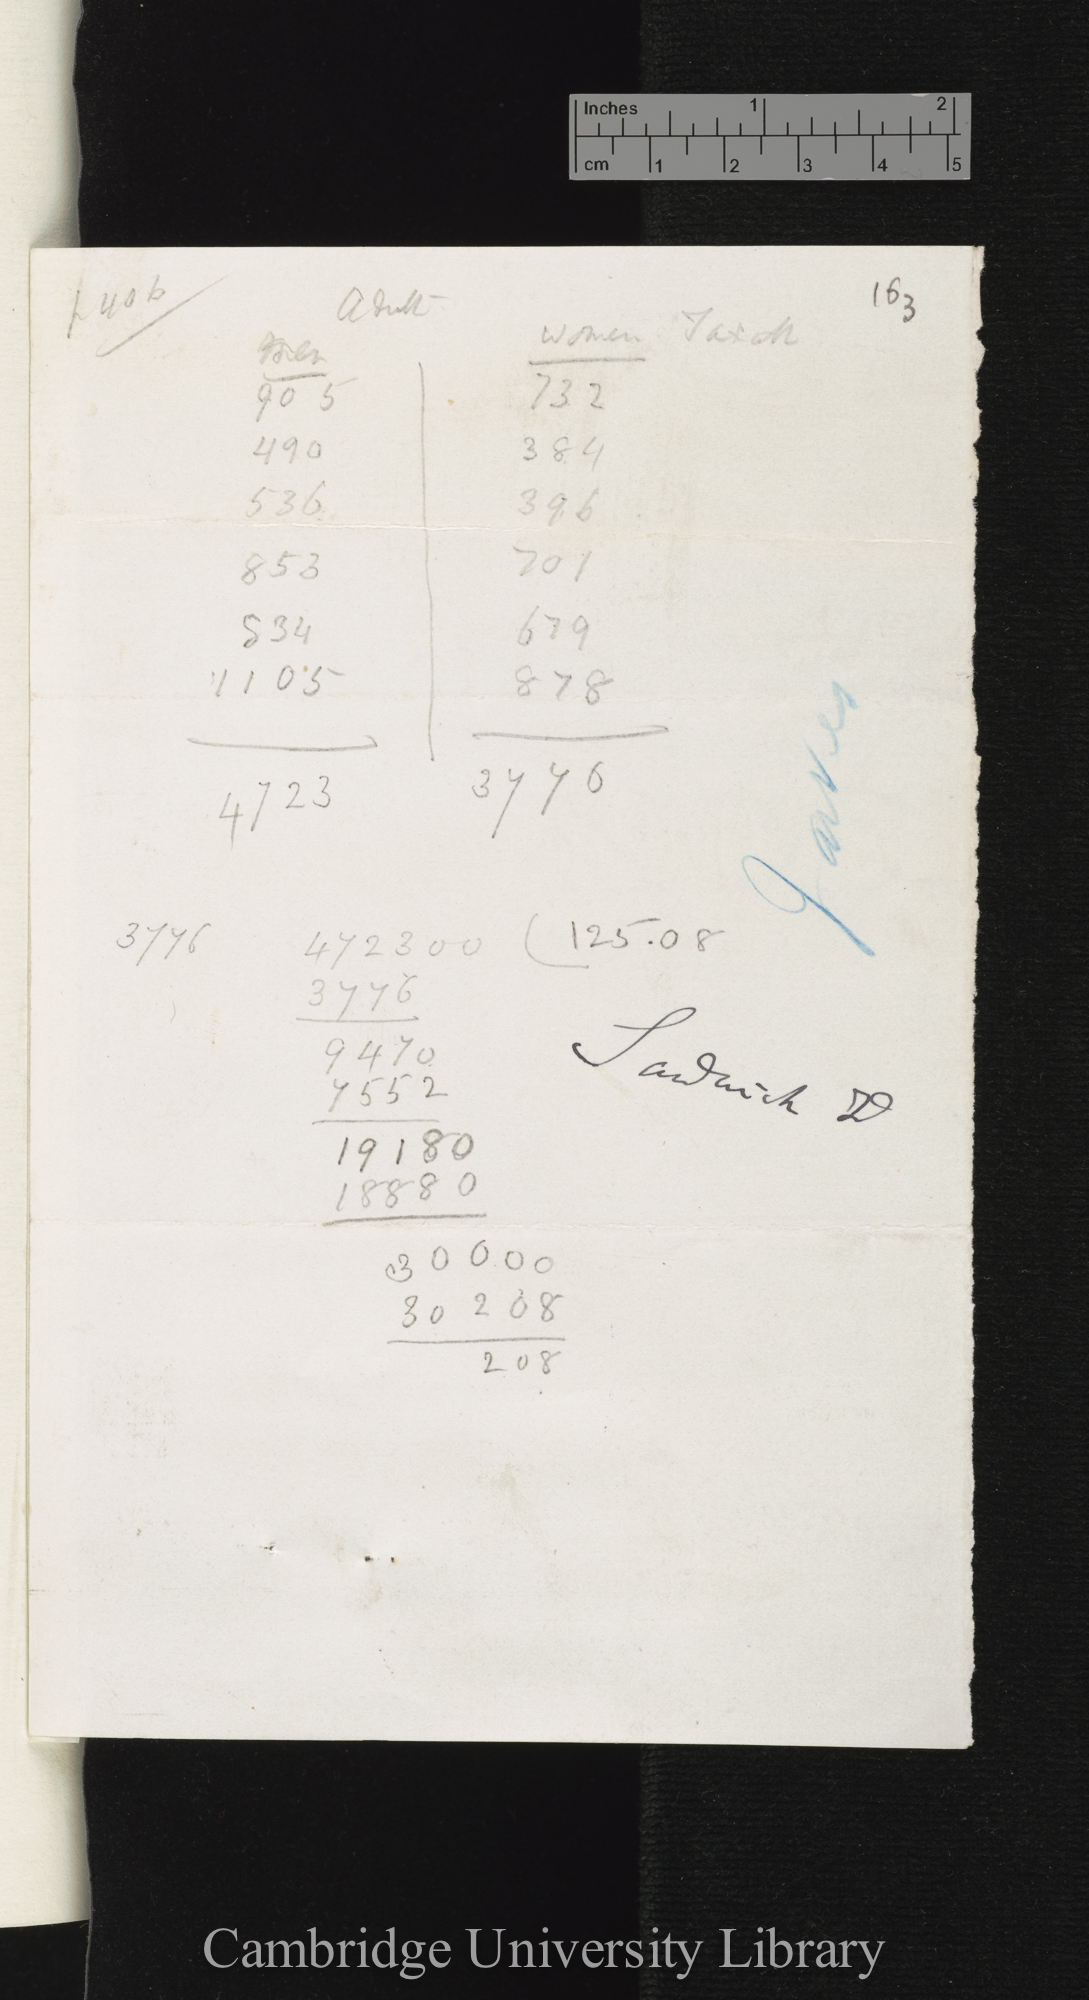 p 406
Adult
163
Men
women
905 732
490 384
536 396
853 701
834 679
1105 878
4723 3776
Jarves
3776 472300 ( 125.08
3776
9470
7552
19180
18880
30000
30208
208
Sandwich I
Inches 1 2
cm 1 2 3 4 5
Cambridge University Library